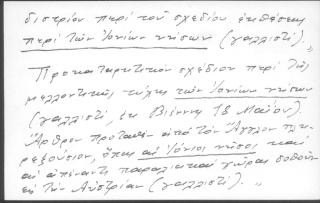 διστρίου περί τοῦ σχεδίου ἐκθέσεως
περί τῶν Ἰονίων νήσων (γαλλιστί).
Προκαταρκτικόν σχέδιον περί τῆς
μελλοντικῆς τύχης τῶν Ἰονίων νήσων
(γαλλιστί, ἐκ Βιέννης 18 Μαΐου).
Ἄρθρον προταθέν ἀπό τόν Ἄγγλον πλη-
ρεξούσιον, ὅπως αἱ Ἰόνιοι νῆσοι καί
αἱ ἀπέναντι παραλιακαί χῶραι δοθοῦν
εἰς τήν Αὐστρίαν (γαλλιστί).